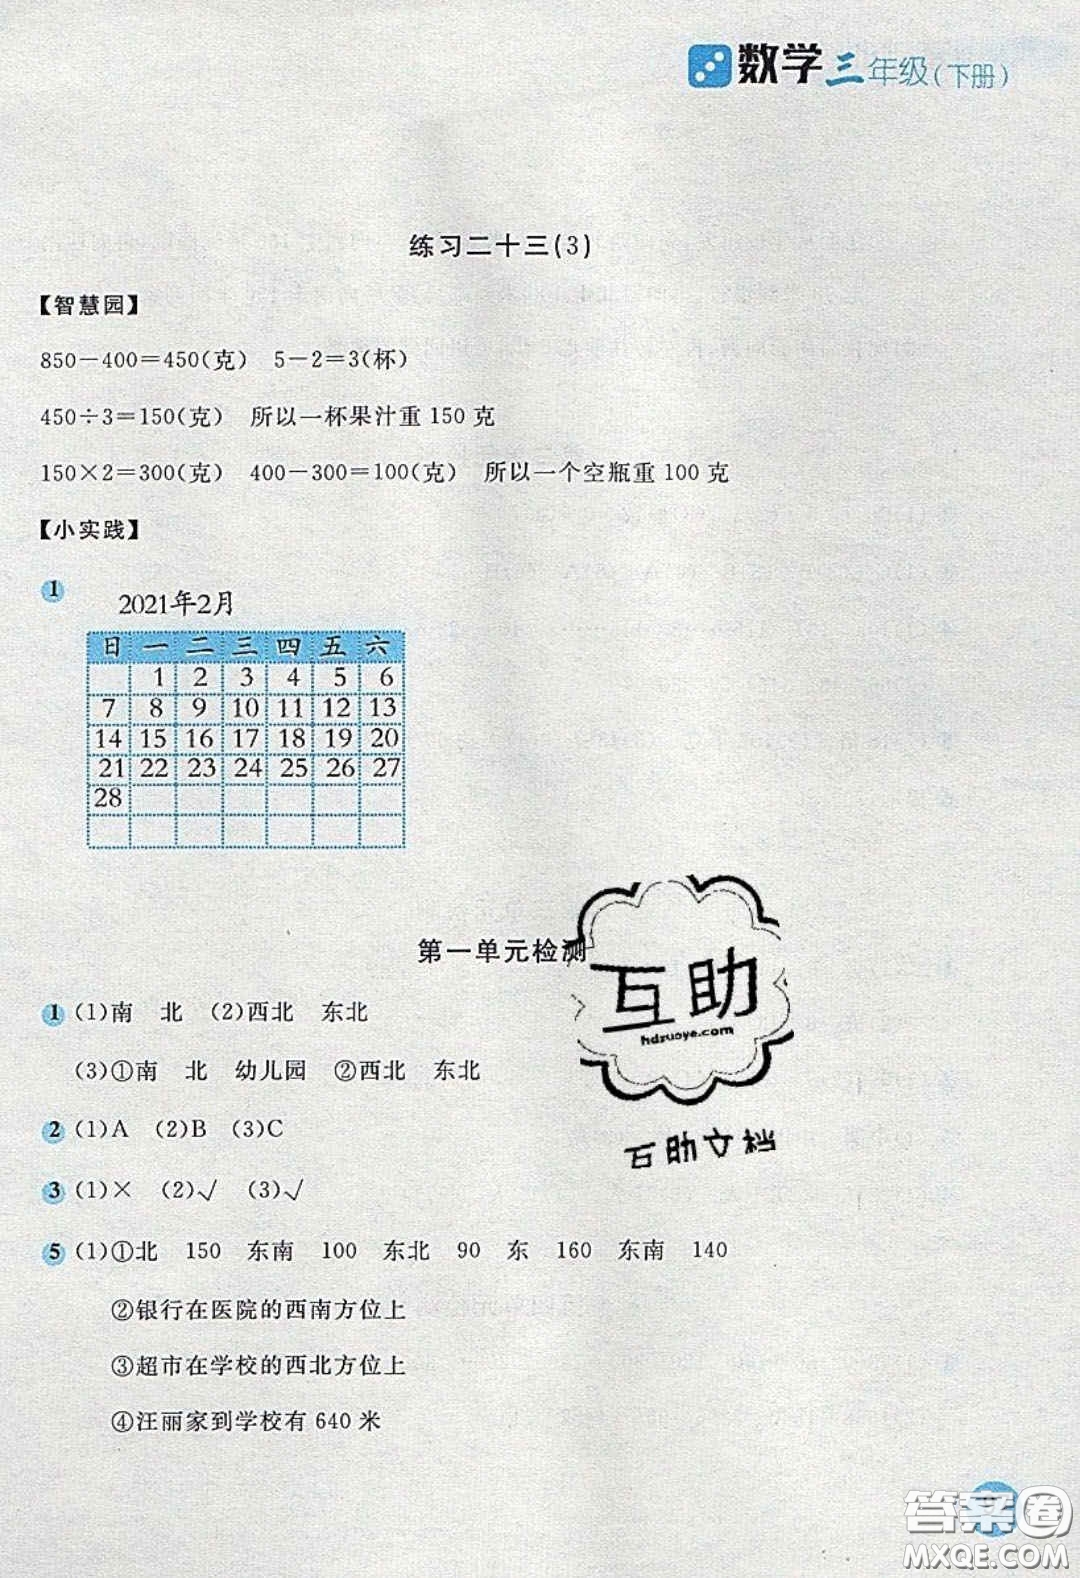 数学三年级(下册)
练习二十三(3)
【智慧园】
850－400＝450(克) 5－2＝3(杯)
450÷3＝150(克) 所以一杯果汁重 150 克
150×2＝300(克) 400－300＝100(克) 所以一个空瓶重 100 克
【小实践】
1
2021年2月
日 一 二 三 四 五 六
1 2 3 4 5 6
7 8 9 10 11 12 13
14 15 16 17 18 19 20
21 22 23 24 25 26 27
28
第一单元检测
互助
hdzuoye.com
互助文档
1 (1)南 北 (2)西北 东北
(3)①南 北 幼儿园 ②西北 东北
2 (1)A (2)B (3)C
3 (1)× (2)√ (3)√
5 (1)①北 150 东南 100 东北 90 东 160 东南 140
②银行在医院的西南方位上
③超市在学校的西北方位上
④汪丽家到学校有 640 米
答案圈
MXQE.COM